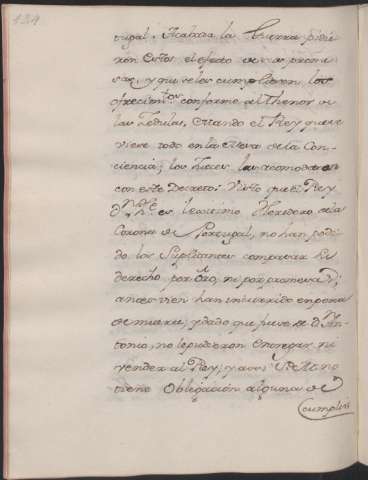 tugal. Acabada la Guerra pidie
ron estos el efecto de sus prome
sas, y que se les cumpliesen los
ofrecim.tos conforme al thenor de
las Zedulas, estando el Rey que se
viese todo en la Mesa de la Con
ciencia; los Jueces las acomodaron
con este Decreto: Visto que el Rey
D.n Ph.e es lexitimo Heredero de la
Corona de Portugal, no han podi
do los Suplicantes comprar su
derecho por oro, ni por promesa;
antes vien han incurrido en pena
de muerte, y dado que fuese de D.n An-
tonio, no le pudieron entregar, ni
vender al Rey, y assi S. M. no
tiene obligacion alguna de
cumplir